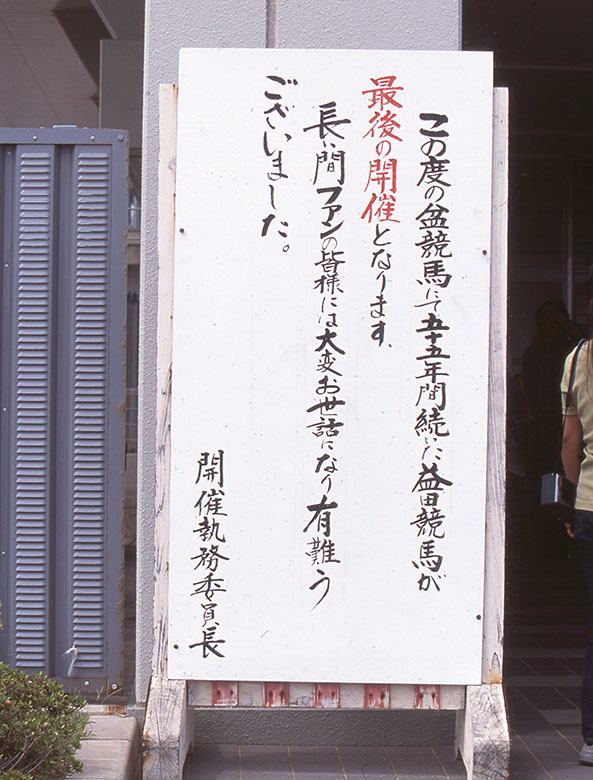 この度の盆競馬にて五十五年間続いた益田競馬が
最後の開催となります、
長い間ファンの皆様には大変お世話になり有難う
ございました。
開催執務委員長